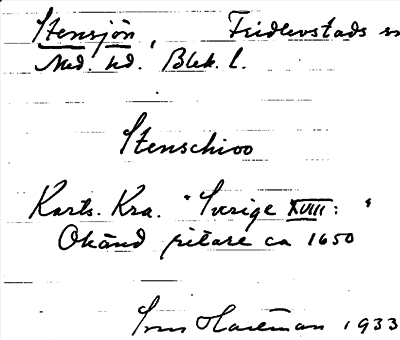 Stensjön, Fridlevstads sn
Med. hd. Blek. l.
Stenschiöö
Karts. Kra. "Sverige XVIII: "
Okänd ritare ca 1650
Hareman 1933